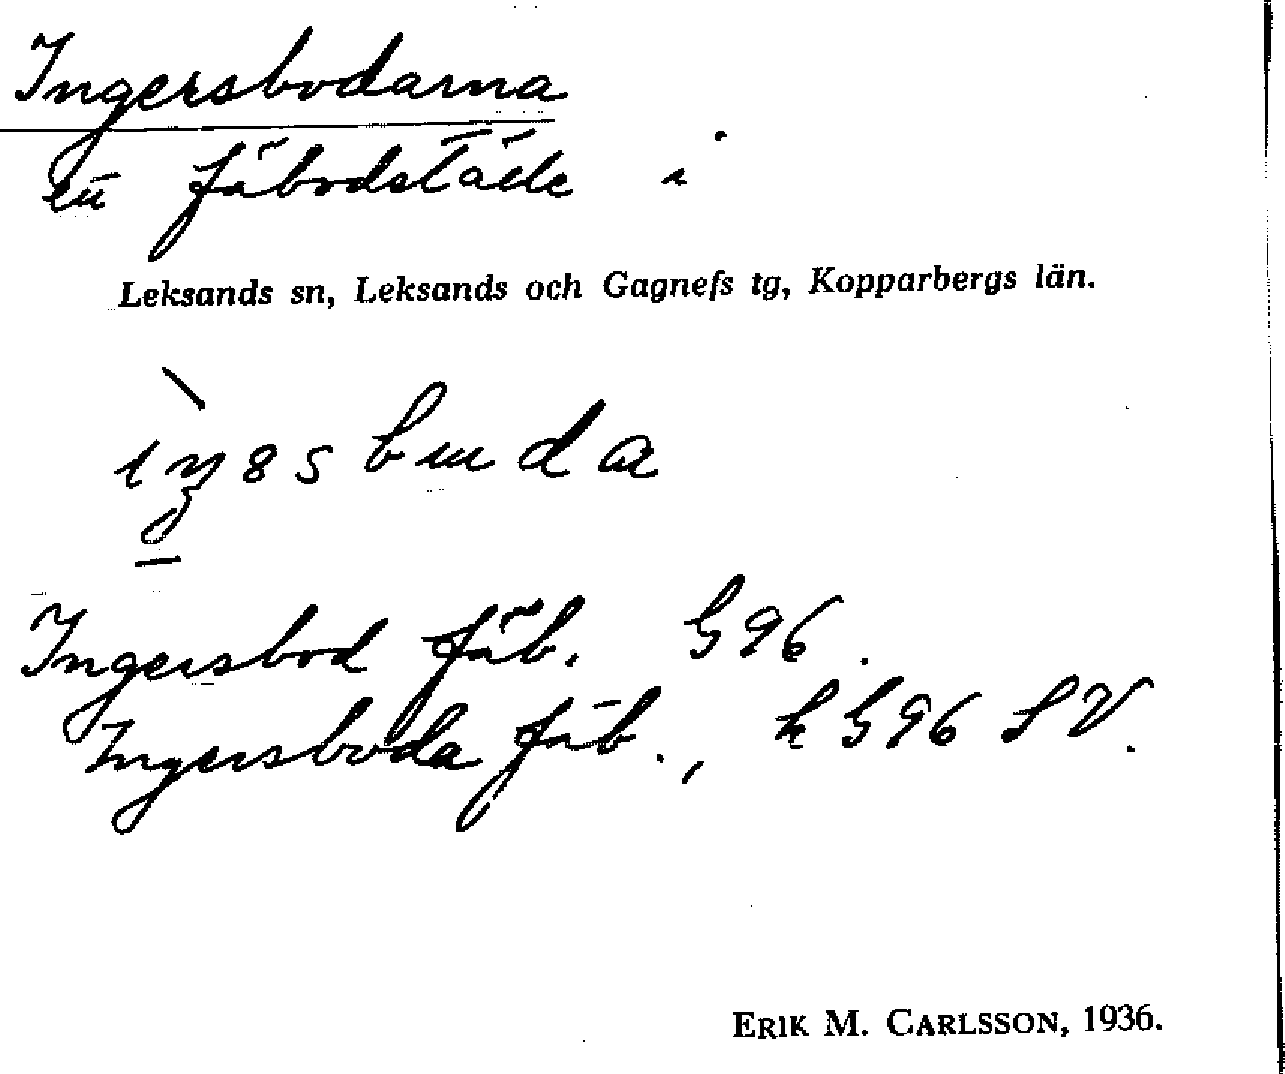 Ingersbodarna
ett fäbodställe i
Leksands sn, Leksands och Gagnefs tg, Kopparbergs län.
Ingersbod fäb. G96.
Ingersboda fäb., k G96 SV.
ERIK M. CARLSSON, 1936.